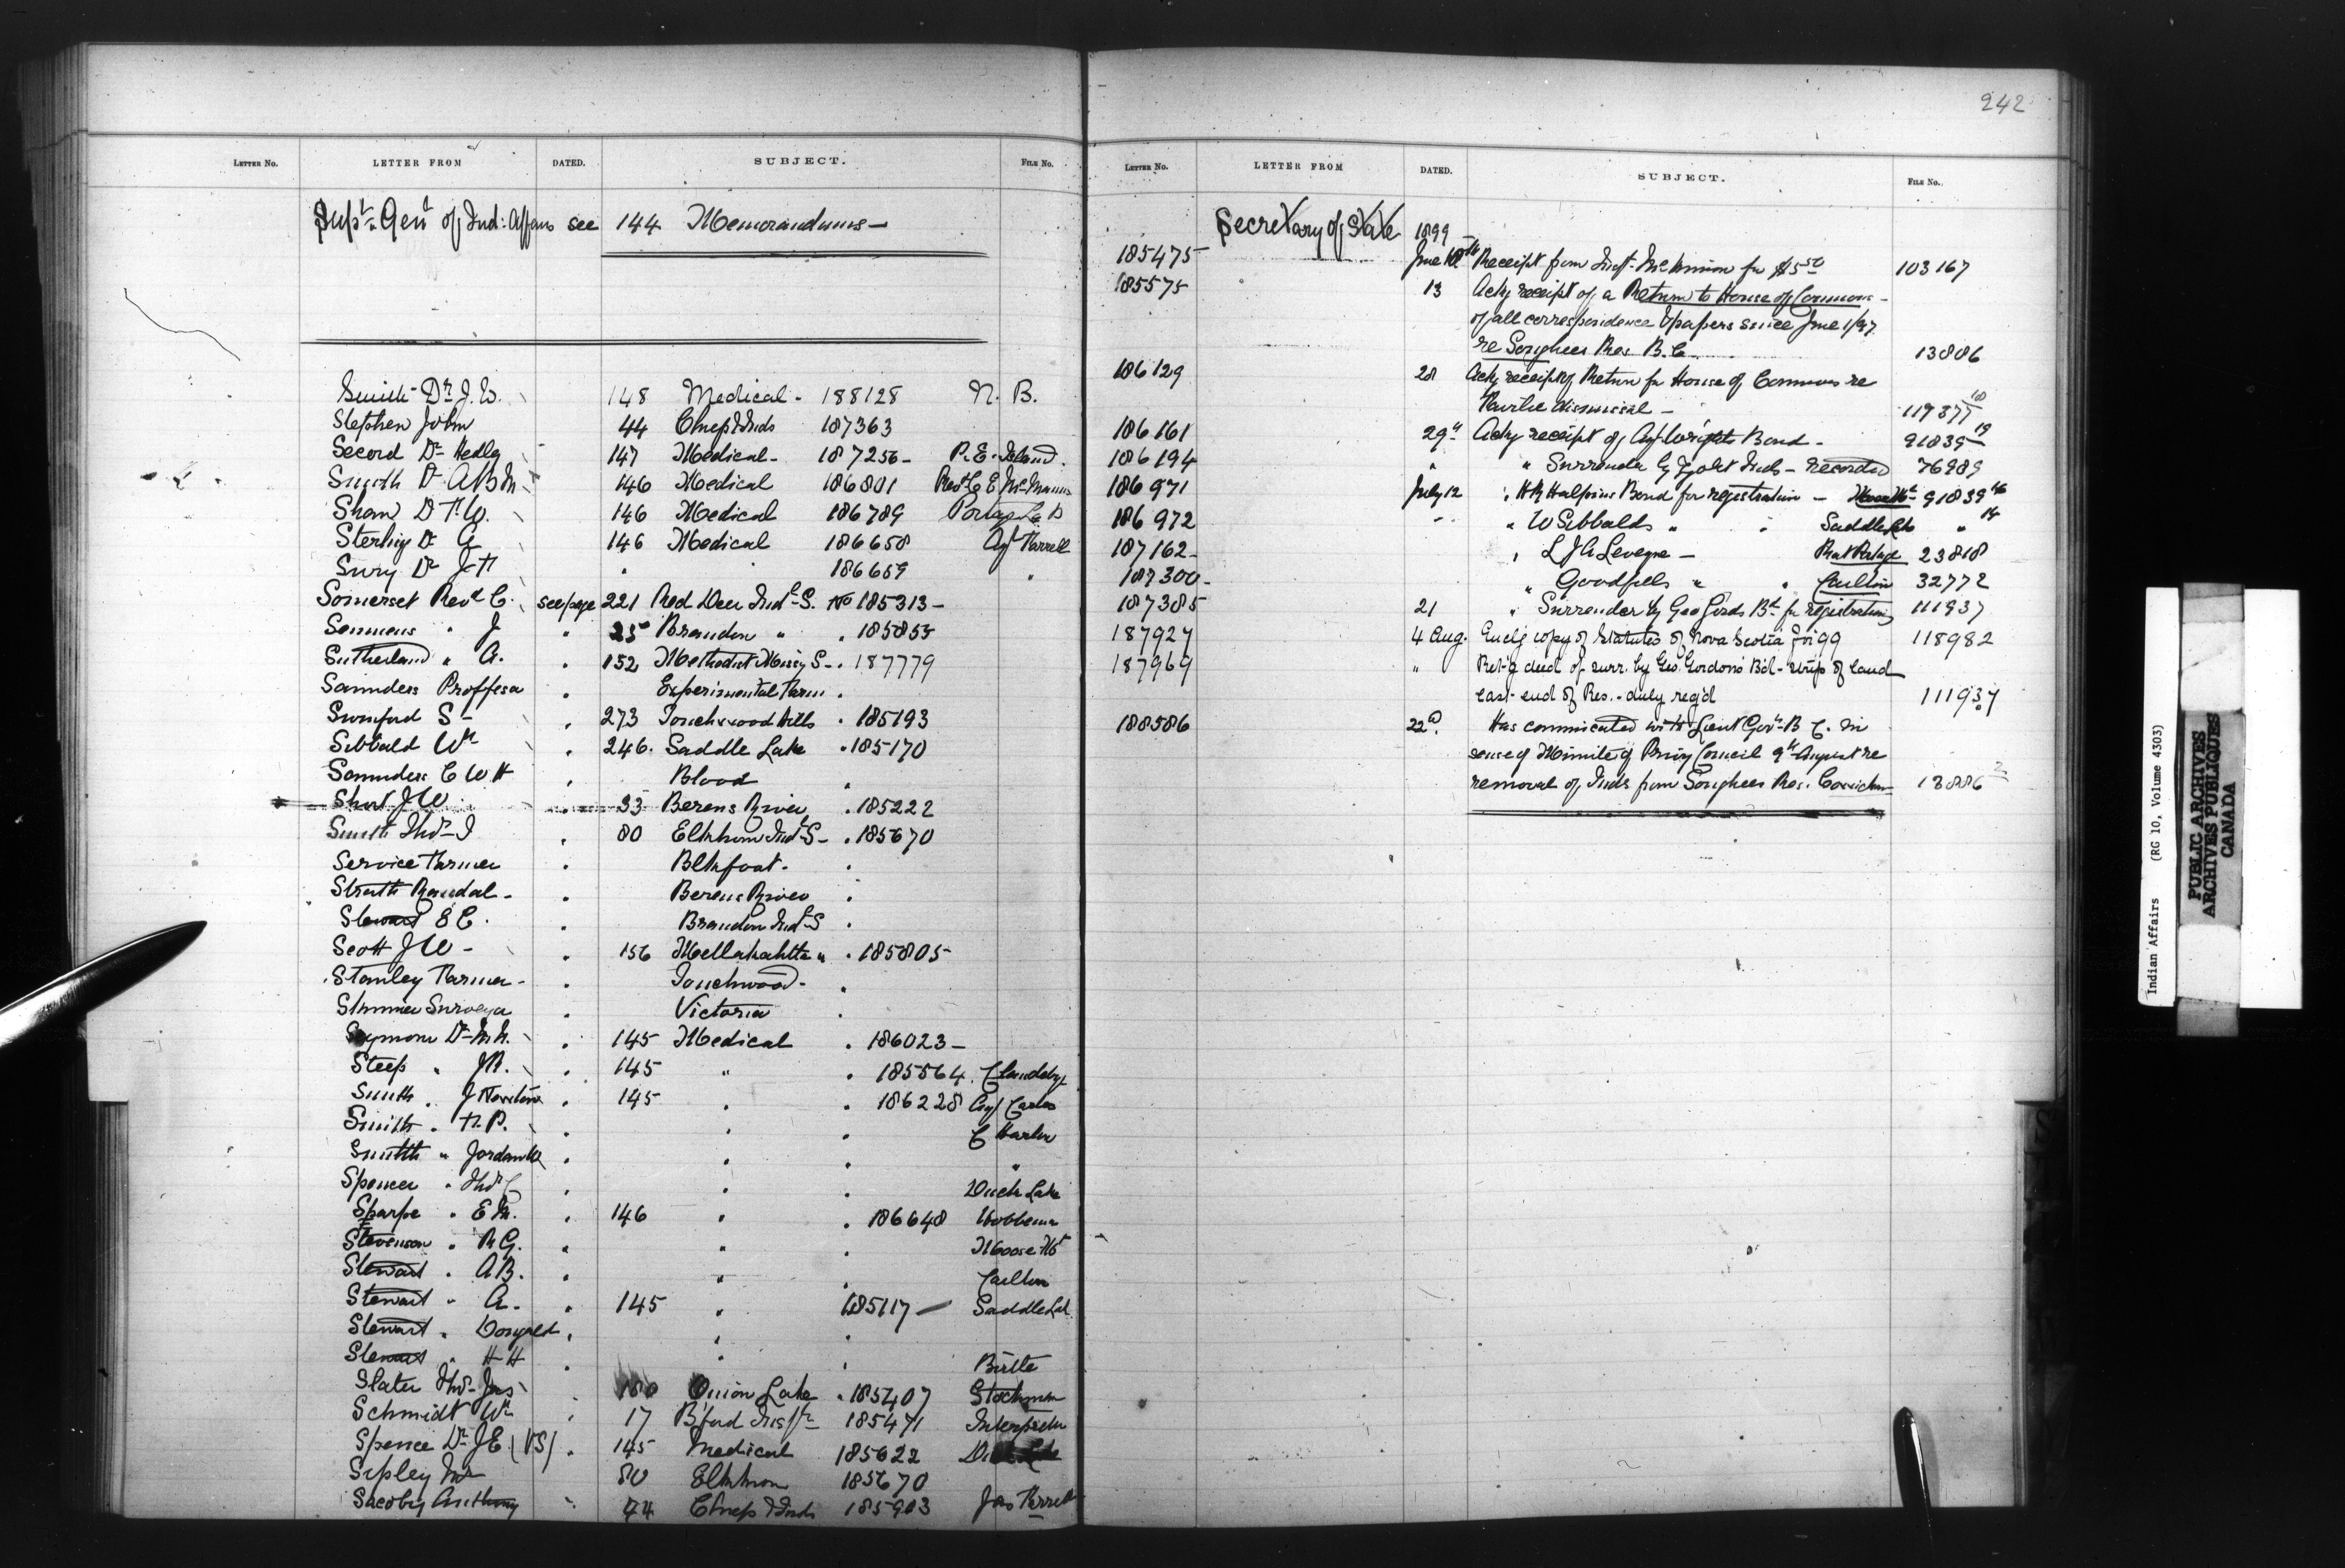 242
LETTER NO. LETTER FROM DATED. SUBJECT. FILE NO.
Supt. Genl of Ind: Affairs see 144 Memorandums —
Smith Dr J. W. 148 Medical - 188128 N. B.
Stephen John 44 Chiefs & Inds 187363
Secord Dr Hedly 147 Medical - 187256 - P. E. Island.
Smyth Dr A B M 146 Medical 186801 Revd C E McManus
Shaw Dr T. W. 146 Medical 186789 Portage La P
Sterling Dr A 146 Medical 186658 Agt Farrell
Sury Dr J. H " " 186659 "
Somerset Revd C. see page 221 Red Deer Indl S. No 185313 -
Semmens " J " 25 Brandon " " 185855
Sutherland " A. " 152 Methodist Missy S - . 187779
Saunders Proffesa " Experimental Farm .
Swinford S - " 273 Touchwood Hills . 185193
Sibbald Wm " 246. Saddle Lake . 185170
Saunders C W H " Blood "
Short J W " 33 Berens River . 185222
Smith Thos I " 80 Elkhorn Indl S - . 185670
Service Farmer " Blkfoot - .
Strath Randal - " Berens River .
Stewart E C. " Brandon Indl S .
Scott J W - " 156 Metlakahtla " . 185805
Stanley Farmer - " Touchwood - .
Skinner Surveyor " Victoria .
Symons Dr M. M. " 145 Medical . 186023 -
Steep " J R. " 145 " . 185564 C Landeby
Smith . J Newton . 145 . . 186228 Agt Carter
Smith . H. P. . . . C Harlow
Smith " Jordan W . . . "
Spencer . Thos C . . . Duck Lake
Sharpe . E M. . 146 . . 186648 Hobbema
Stevenson . R G. . " . Moose Mt
Stewart . A B. . " . Carlton
Stewart " A. . 145 . 185117 — Saddle Lak
Stewart . Donald . . .
Stewart . H H . . . Birtle
Slater Thos Jas 180 Onion Lake . 185407 Stockman
Schmidt Wm 17 B'ford 185471 Interpreter
Spence Dr J E (VS) . 145 Medical 185622
Sipley 80 Elkhorn 185670
Sacoby Anthony 44 Chiefs & Inds 185903 Jas Farrell
LETTER NO. LETTER FROM DATED. SUBJECT. FILE NO.
Secretary of State 1899
185475 June 10th Receipt from Inspt. McKinnon for $5.50 103167
185575 13 Ackg receipt of a Return to House of Commons -
of all correspondence & papers since June 1/97
re Songhees Res. B. C. 13886
186129 28 Ackg receipt of Return for House of Commons re
dismissal — 119377 10
186161 29th Ackg receipt of Agt Wright's Bond - 91839 19
186194 " " Surrender by Inds - recorded 76989
186971 July 12 " H M Halpins Bond for registration — Moose Mt 91839 16
186972 " " W Sibbalds " " Saddle Lake " 14
187162 - " L J A Leveque — Rat Portage 23818
187300 - " Goodfells " " Carlton 32772
187385 21 " Surrender by Geo Gords Bd for registration 111937
187927 4 Aug. Enclg copy of Statutes of Nova Scotia for '99 118982
187969 " Ret'g deed of surr. by Geo. Gordon's B'd - strip of land
east end of Res. - duly reg'd 111937
188586 22d. Has communicated with Lieut Govr B C. in
sense of Minute of Privy Council 9th August re
removal of Inds from Songhees Res. Cowichan 13886 2
Indian Affairs (RG 10, Volume 4303)
PUBLIC ARCHIVES
ARCHIVES PUBLIQUES
CANADA